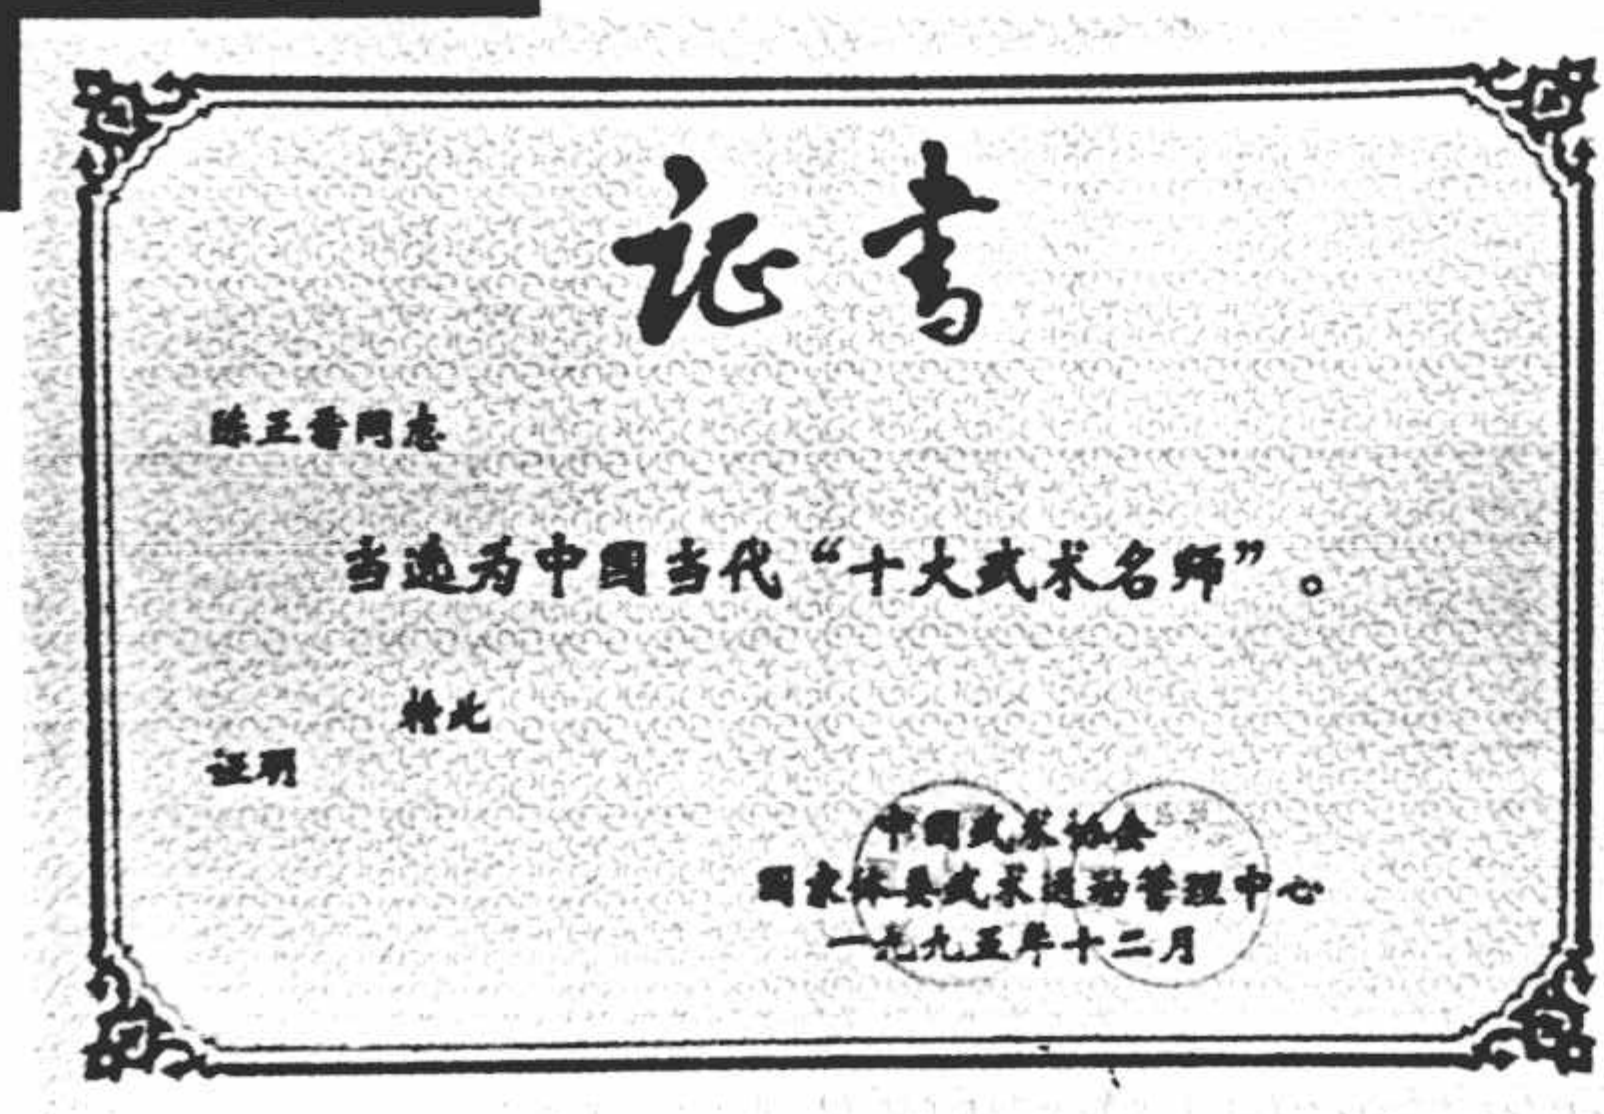 证书
陈正雷同志
当选为中国当代“十大武术名师”。
特此
证明
中国武术协会
国家体委武术运动管理中心
一九九五年十二月